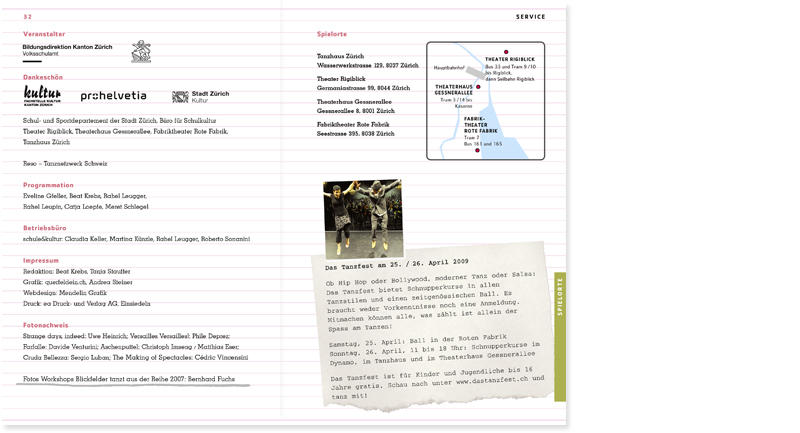 32
SERVICE
Veranstalter
Bildungsdirektion Kanton Zürich
Volksschulamt
Dankeschön
kultur
FACHSTELLE KULTUR
KANTON ZÜRICH
prohelvetia
Stadt Zürich
Kultur
Schul- und Sportdepartement der Stadt Zürich, Büro für Schulkultur
Theater Rigiblick, Theaterhaus Gessnerallee, Fabriktheater Rote Fabrik,
Tanzhaus Zürich
Reso – Tanznetzwerk Schweiz
Programmation
Eveline Gfeller, Beat Krebs, Rahel Leugger,
Rahel Leupin, Catja Loepfe, Meret Schlegel
Betriebsbüro
schule&kultur: Claudia Keller, Martina Künzle, Rahel Leugger, Roberto Sonanini
Impressum
Redaktion: Beat Krebs, Tanja Stauffer
Grafik: querfeldein.ch, Andrea Steiner
Webdesign: Mendelin Grafik
Druck: ea Druck- und Verlag AG, Einsiedeln
Fotonachweis
Strange days, indeed: Uwe Heinrich; Versailles Versailles!: Phile Deprez;
Farfalle: Davide Venturini; Aschenputtel: Christoph Imseng / Matthias Eser;
Cruda Bellezza: Sergio Luban; The Making of Spectacles: Cédric Vincensini
Fotos Workshops Blickfelder tanzt aus der Reihe 2007: Bernhard Fuchs
Spielorte
Tanzhaus Zürich
Wasserwerkstrasse 129, 8037 Zürich
Theater Rigiblick
Germaniastrasse 99, 8044 Zürich
Theaterhaus Gessnerallee
Gessnerallee 8, 8001 Zürich
Fabriktheater Rote Fabrik
Seestrasse 395, 8038 Zürich
THEATER RIGIBLICK
Bus 33 und Tram 9 /10
bis Rigiblick,
dann Seilbahn Rigiblick
Hauptbahnhof
THEATERHAUS
GESSNERALLEE
Tram 3 / 14 bis
Kaserne
FABRIK-
THEATER
ROTE FABRIK
Tram 7
Bus 161 und 165
Das Tanzfest am 25. / 26. April 2009
Ob Hip Hop oder Bollywood, moderner Tanz oder Salsa:
Das Tanzfest bietet Schnupperkurse in allen
Tanzstilen und einen zeitgenössischen Ball. Es
braucht weder Vorkenntnisse noch eine Anmeldung.
Mitmachen können alle, was zählt ist allein der
Spass am Tanzen:
Samstag, 25. April: Ball in der Roten Fabrik
Sonntag, 26. April, 11 bis 18 Uhr: Schnupperkurse im
Dynamo, im Tanzhaus und im Theaterhaus Gessnerallee
Das Tanzfest ist für Kinder und Jugendliche bis 16
Jahre gratis. Schau nach unter www.dastanzfest.ch und
tanz mit!
SPIELORTE